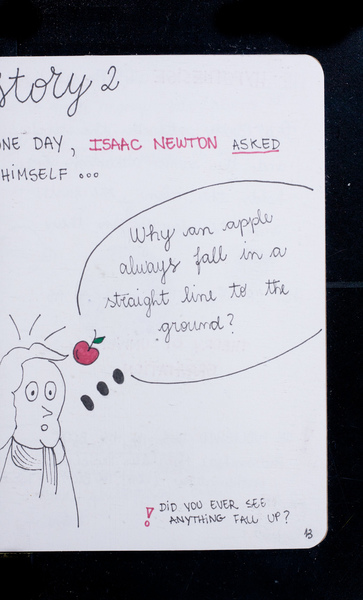 story 2
ONE DAY, ISAAC NEWTON ASKED
HIMSELF ...
Why an apple
always fall in a
straight line to the
ground?
! DID YOU EVER SEE
ANYTHING FALL UP?
13